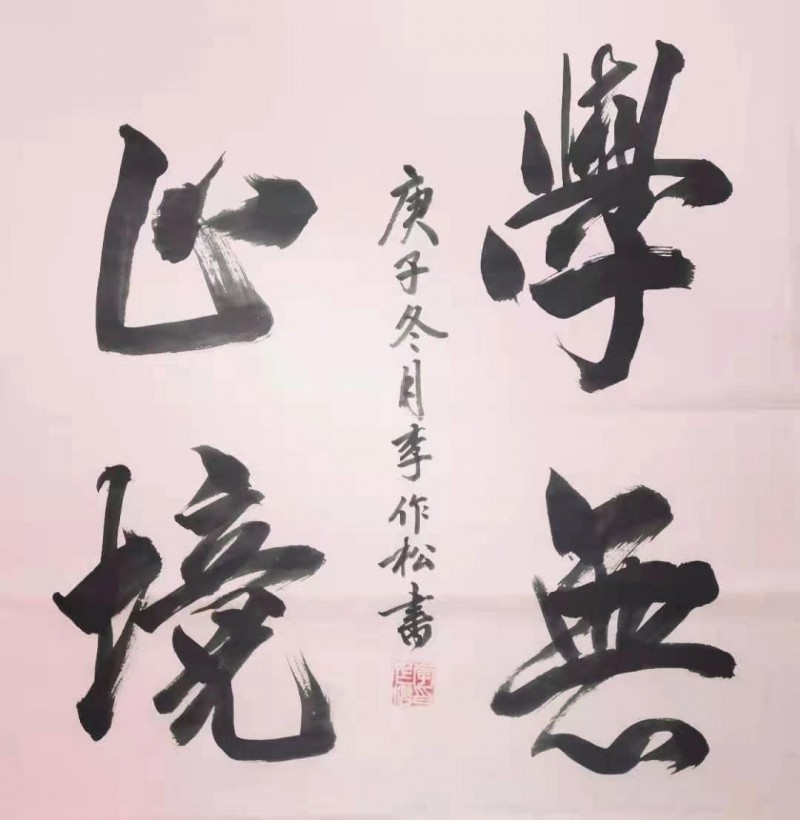 學無
止境
庚子冬月李作松書